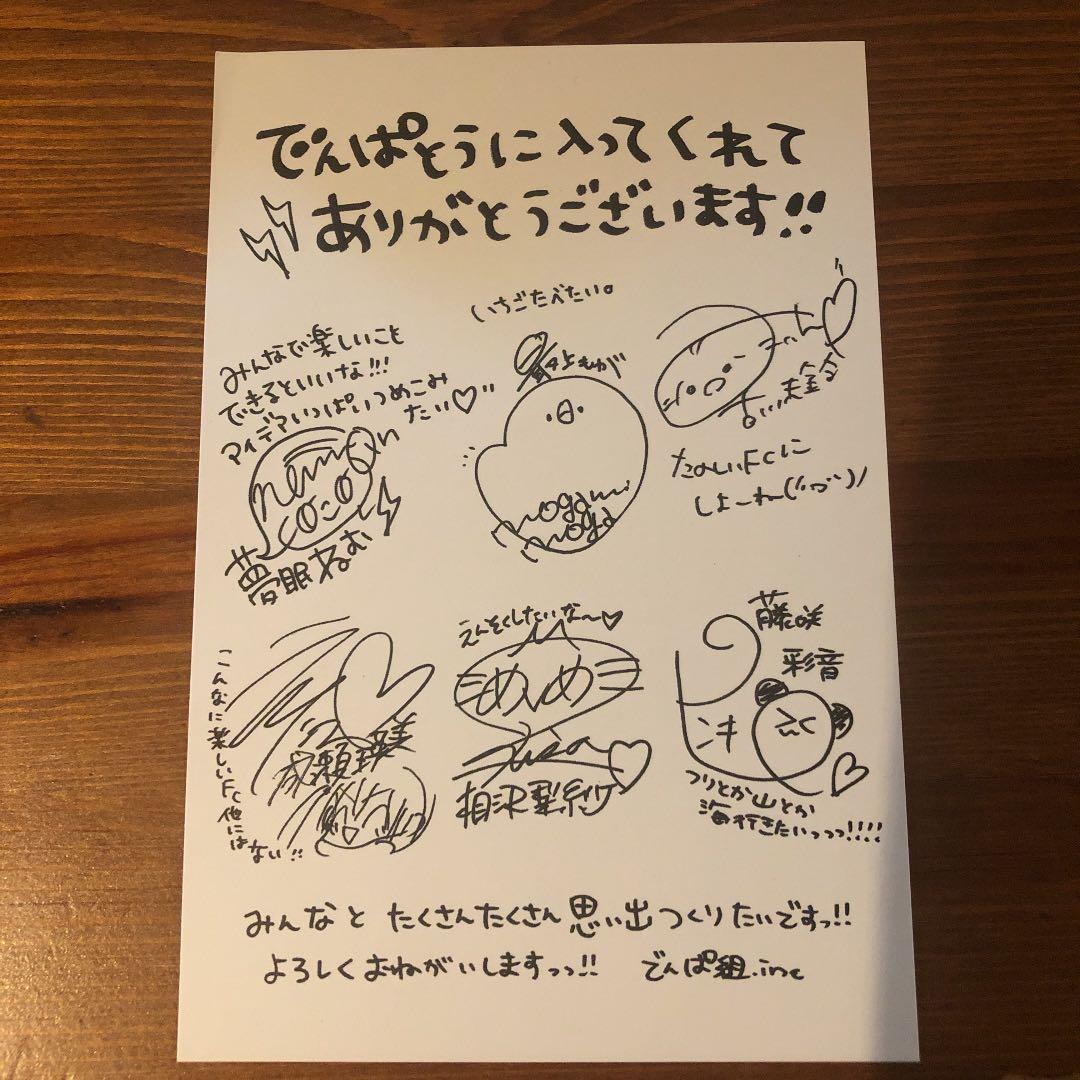 でんぱとうに入ってくれて
ありがとうございます!!
いちごたべたい。
みんなで楽しいこと
できるといいな!!!
アイデアいっぱいつめこみ
たい♡
nemu
夢眠ねむ
最上もが
mogami
moga
未鈴
たのしいFCに
しよーねー
こんなに楽しいFC他にはない!!
成瀬瑛美
えんそくしたいな〜♡
めめ
risa
相沢梨紗
藤咲
彩音
ピンキ
つりとか山とか
海行きたいっっっ!!!!
みんなと たくさんたくさん思い出つくりたいですっ!!
よろしくおねがいしますっっ!! でんぱ組.inc